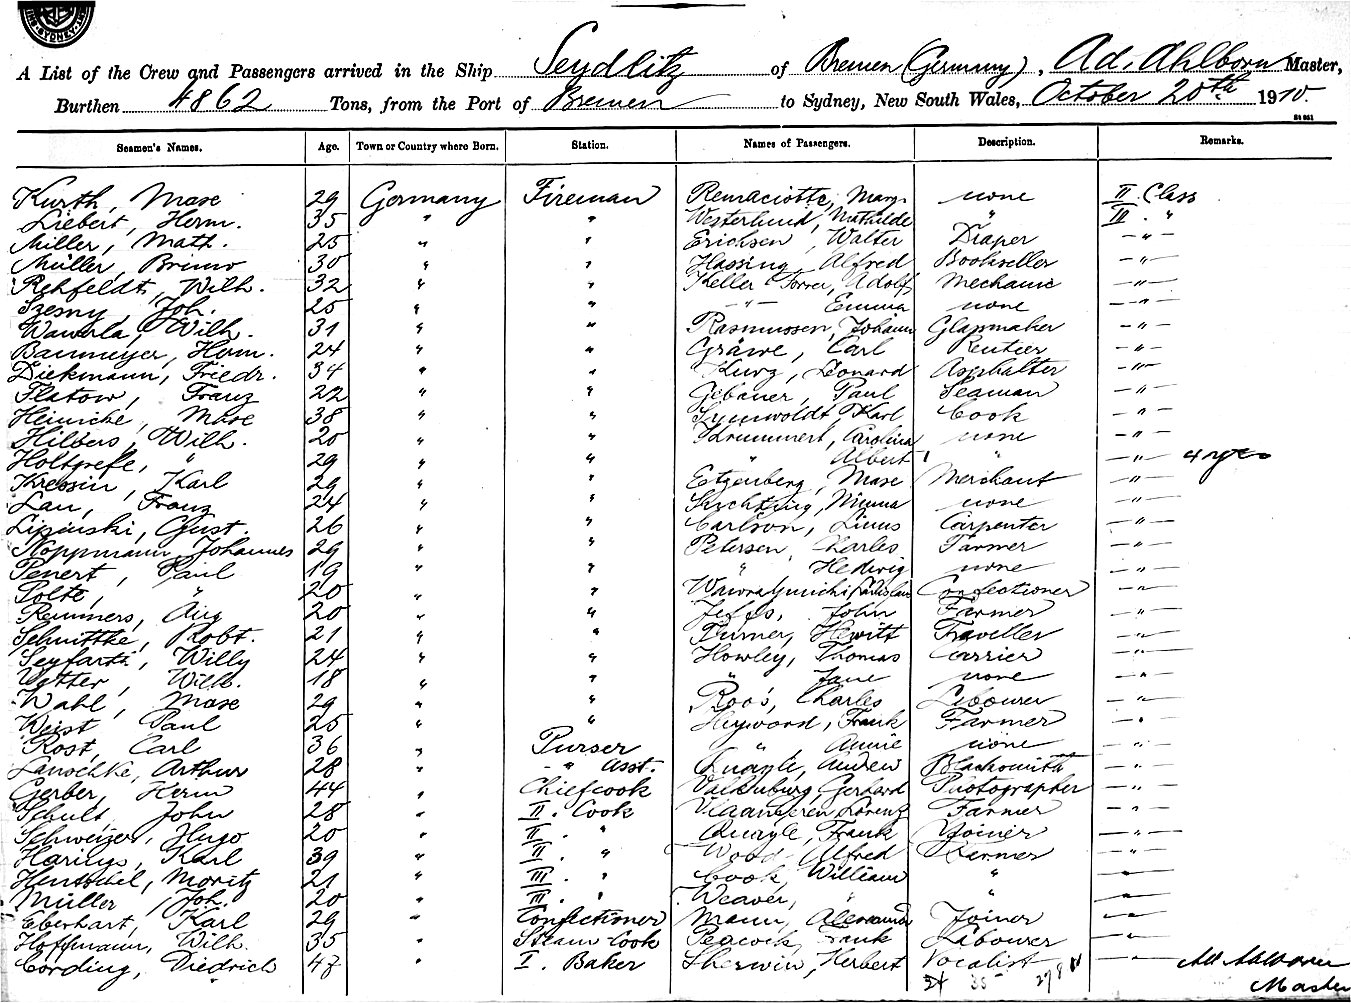 SYDNEY
A List of the Crew and Passengers arrived in the Ship Seydlitz of Bremen (Germany), Ad. Ahlborn Master,
Burthen 4862 Tons, from the Port of Bremen to Sydney, New South Wales, October 20th 1910.
Seamen's Names. Age. Town or Country where Born. Station. Names of Passengers. Description. Remarks.
Kurth, Maxe 29 Germany Fireman Remaciotte, Marg. none II Class
Liebert, Herm. 35 " " Westerlund, Mathilde " III. "
Miller, Math. 25 " " Erichsen, Walter Draper -"-
Müller, Bruno 30 " " Hassing, Alfred Bookseller -"-
Rehfeldt, Wilh. 32 " " Keller Forrer, Adolf Mechanic -"-
Szesny, Joh. 25 " " -"- Emma none -"-
Wawrla, Wilh. 31 " " Rasmussen, Johann Glasmaker -"-
Baumeyer, Herm. 24 " " Gräwe, Carl Rentier -"-
Diekmann, Friedr. 34 " " Kurz, Leonard Asphalter -"-
Flatow, Franz 22 " " Gebauer, Paul Seaman -"-
Heinicke, Maxe 38 " " Karl Cook -"-
Hilbers, Wilh. 20 " " Krummert, Carolina none -"-
Holtgrefe, " 29 " " " Albert " -"- 4 yrs
Kressin, Karl 29 " " Etzenberg, Maxe Merchant -"-
Lau, Franz 24 " " Minna none -"-
Lipinski, Gust. 26 " " Carlson, Linus Carpenter -"-
Noppmann, Johannes 29 " " Petersen, Charles Farmer -"-
Penert, Paul 19 " " " Hedwig none -"-
Polte, " 20 " " Confectioner -"-
Remmers, Aug 20 " " John Farmer -"-
Schnittke, Robt. 21 " " Turner, Hewitt Traveller -"-
Seyfarth, Willy 24 " " Howley, Thomas Carrier -"-
Wilh. 18 " " " Jane none -"-
Wahl, Maxe 29 " " Roos, Charles Labourer -"-
Weist Paul 25 " " Heywood, Frank Farmer -"-
Rost, Carl 36 " Purser " Annie none -"-
Lanschke, Arthur 28 " -"- Asst. Quayle, Andrew Blacksmith -"-
Gerber, Herm 44 " Chiefcook Valkenburg, Gerhard Photographer -"-
Schult, John 28 " II. Cook Vlaanderen, Lorenz Farmer -"-
Schweizer, Hugo 20 " II. " Quayle, Frank Joiner -"-
Harings, Karl 39 " II. " Wood, Alfred Farmer -"-
Hentschel, Moritz 21 " III. " Cook, William " -"-
Müller, Joh. 20 " III. " Weaver, " " -"-
Eberhart, Karl 29 " Confectioner Mann, Alexander Joiner -"-
Hoffmann, Wilh. 35 " Steam Cook Peacock, Frank Labourer -"-
Cording, Diedrich 47 " I. Baker Sherwin, Herbert Vocalist -"- Ad Ahlborn
34 35 Master